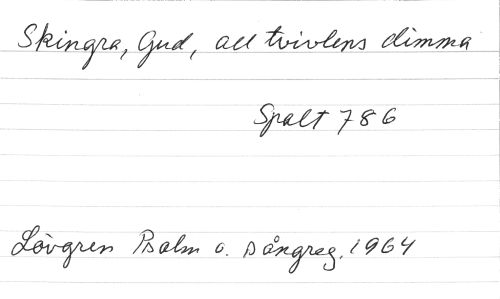 Skingra, Gud, all tvivlens dimma
Spalt 786
Lövgren Psalm o. sångreg. 1964